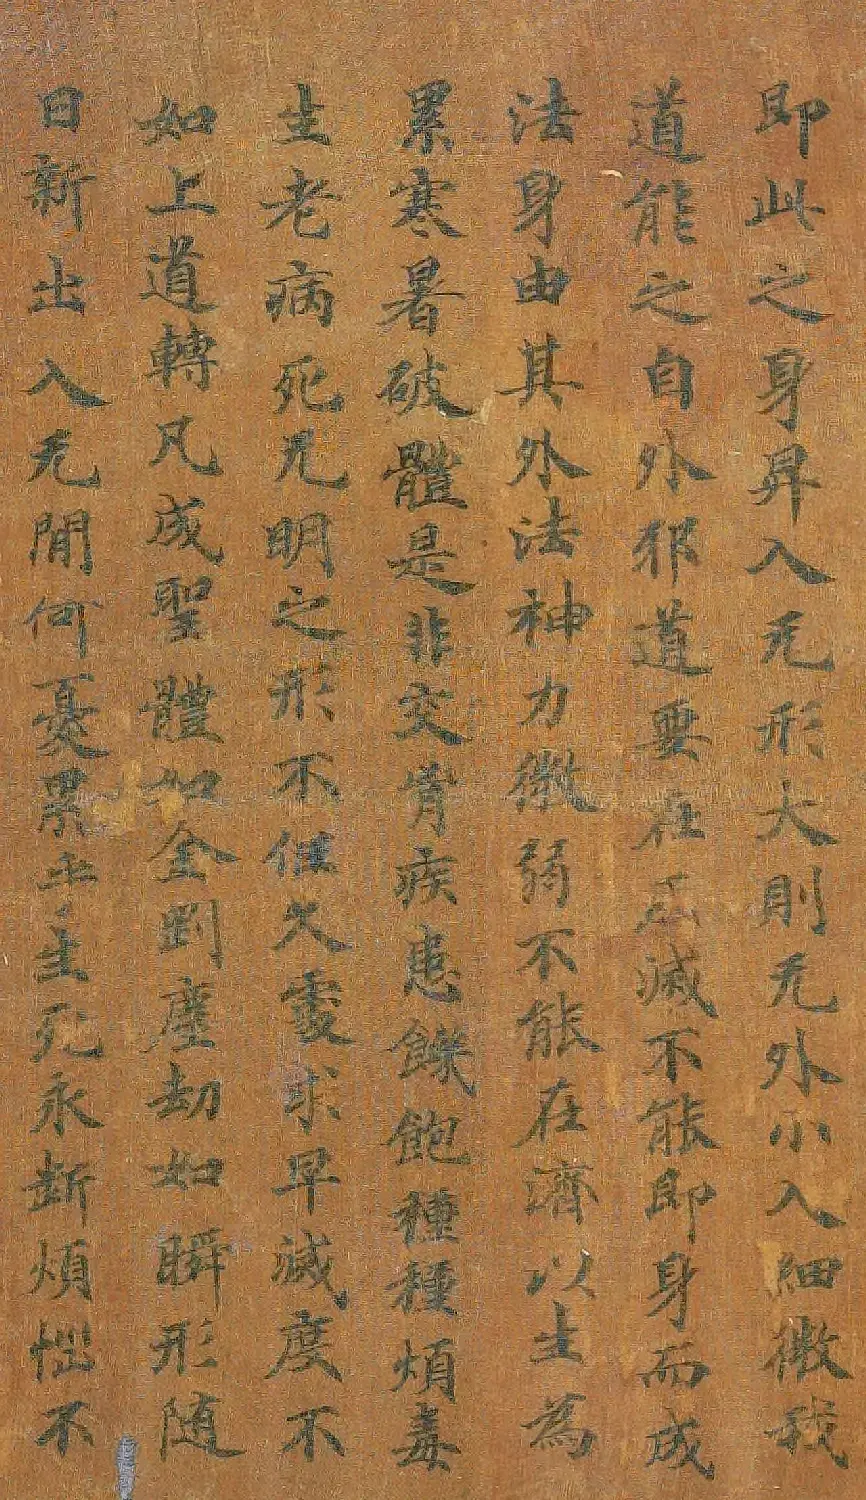 即此之身昇入无形大則无外小入細微我
道能之自外邪道要在忘滅不能即身而成
法身由其外法神力微弱不能在濟以生為
累寒暑破體是非交脊疾患飢飽種種煩毒
生老病死无明之形不任久處求早滅度不
如上道轉凡成聖體如金剛塵劫如瞬形随
日新出入无間何憂累乎生死永斷煩惱不